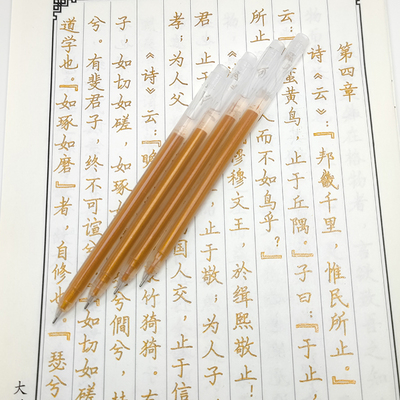 第四章
《诗》云:『邦畿千里,惟民所止。』
云:『蛮黄鸟,止于丘隅。』子曰:『于止
所止 人而不如鸟乎?』
穆穆文王,於缉熙敬止!
君,止于 止于敬;为人子
孝;为人父 国人交,止于信
《诗》云:『瞻 竹猗猗。
子,如切如磋,如 兮僩兮
兮。有斐君子,终不可諠兮 『如切如磋
道学也。『如琢如磨』者,自修也。『瑟兮
大